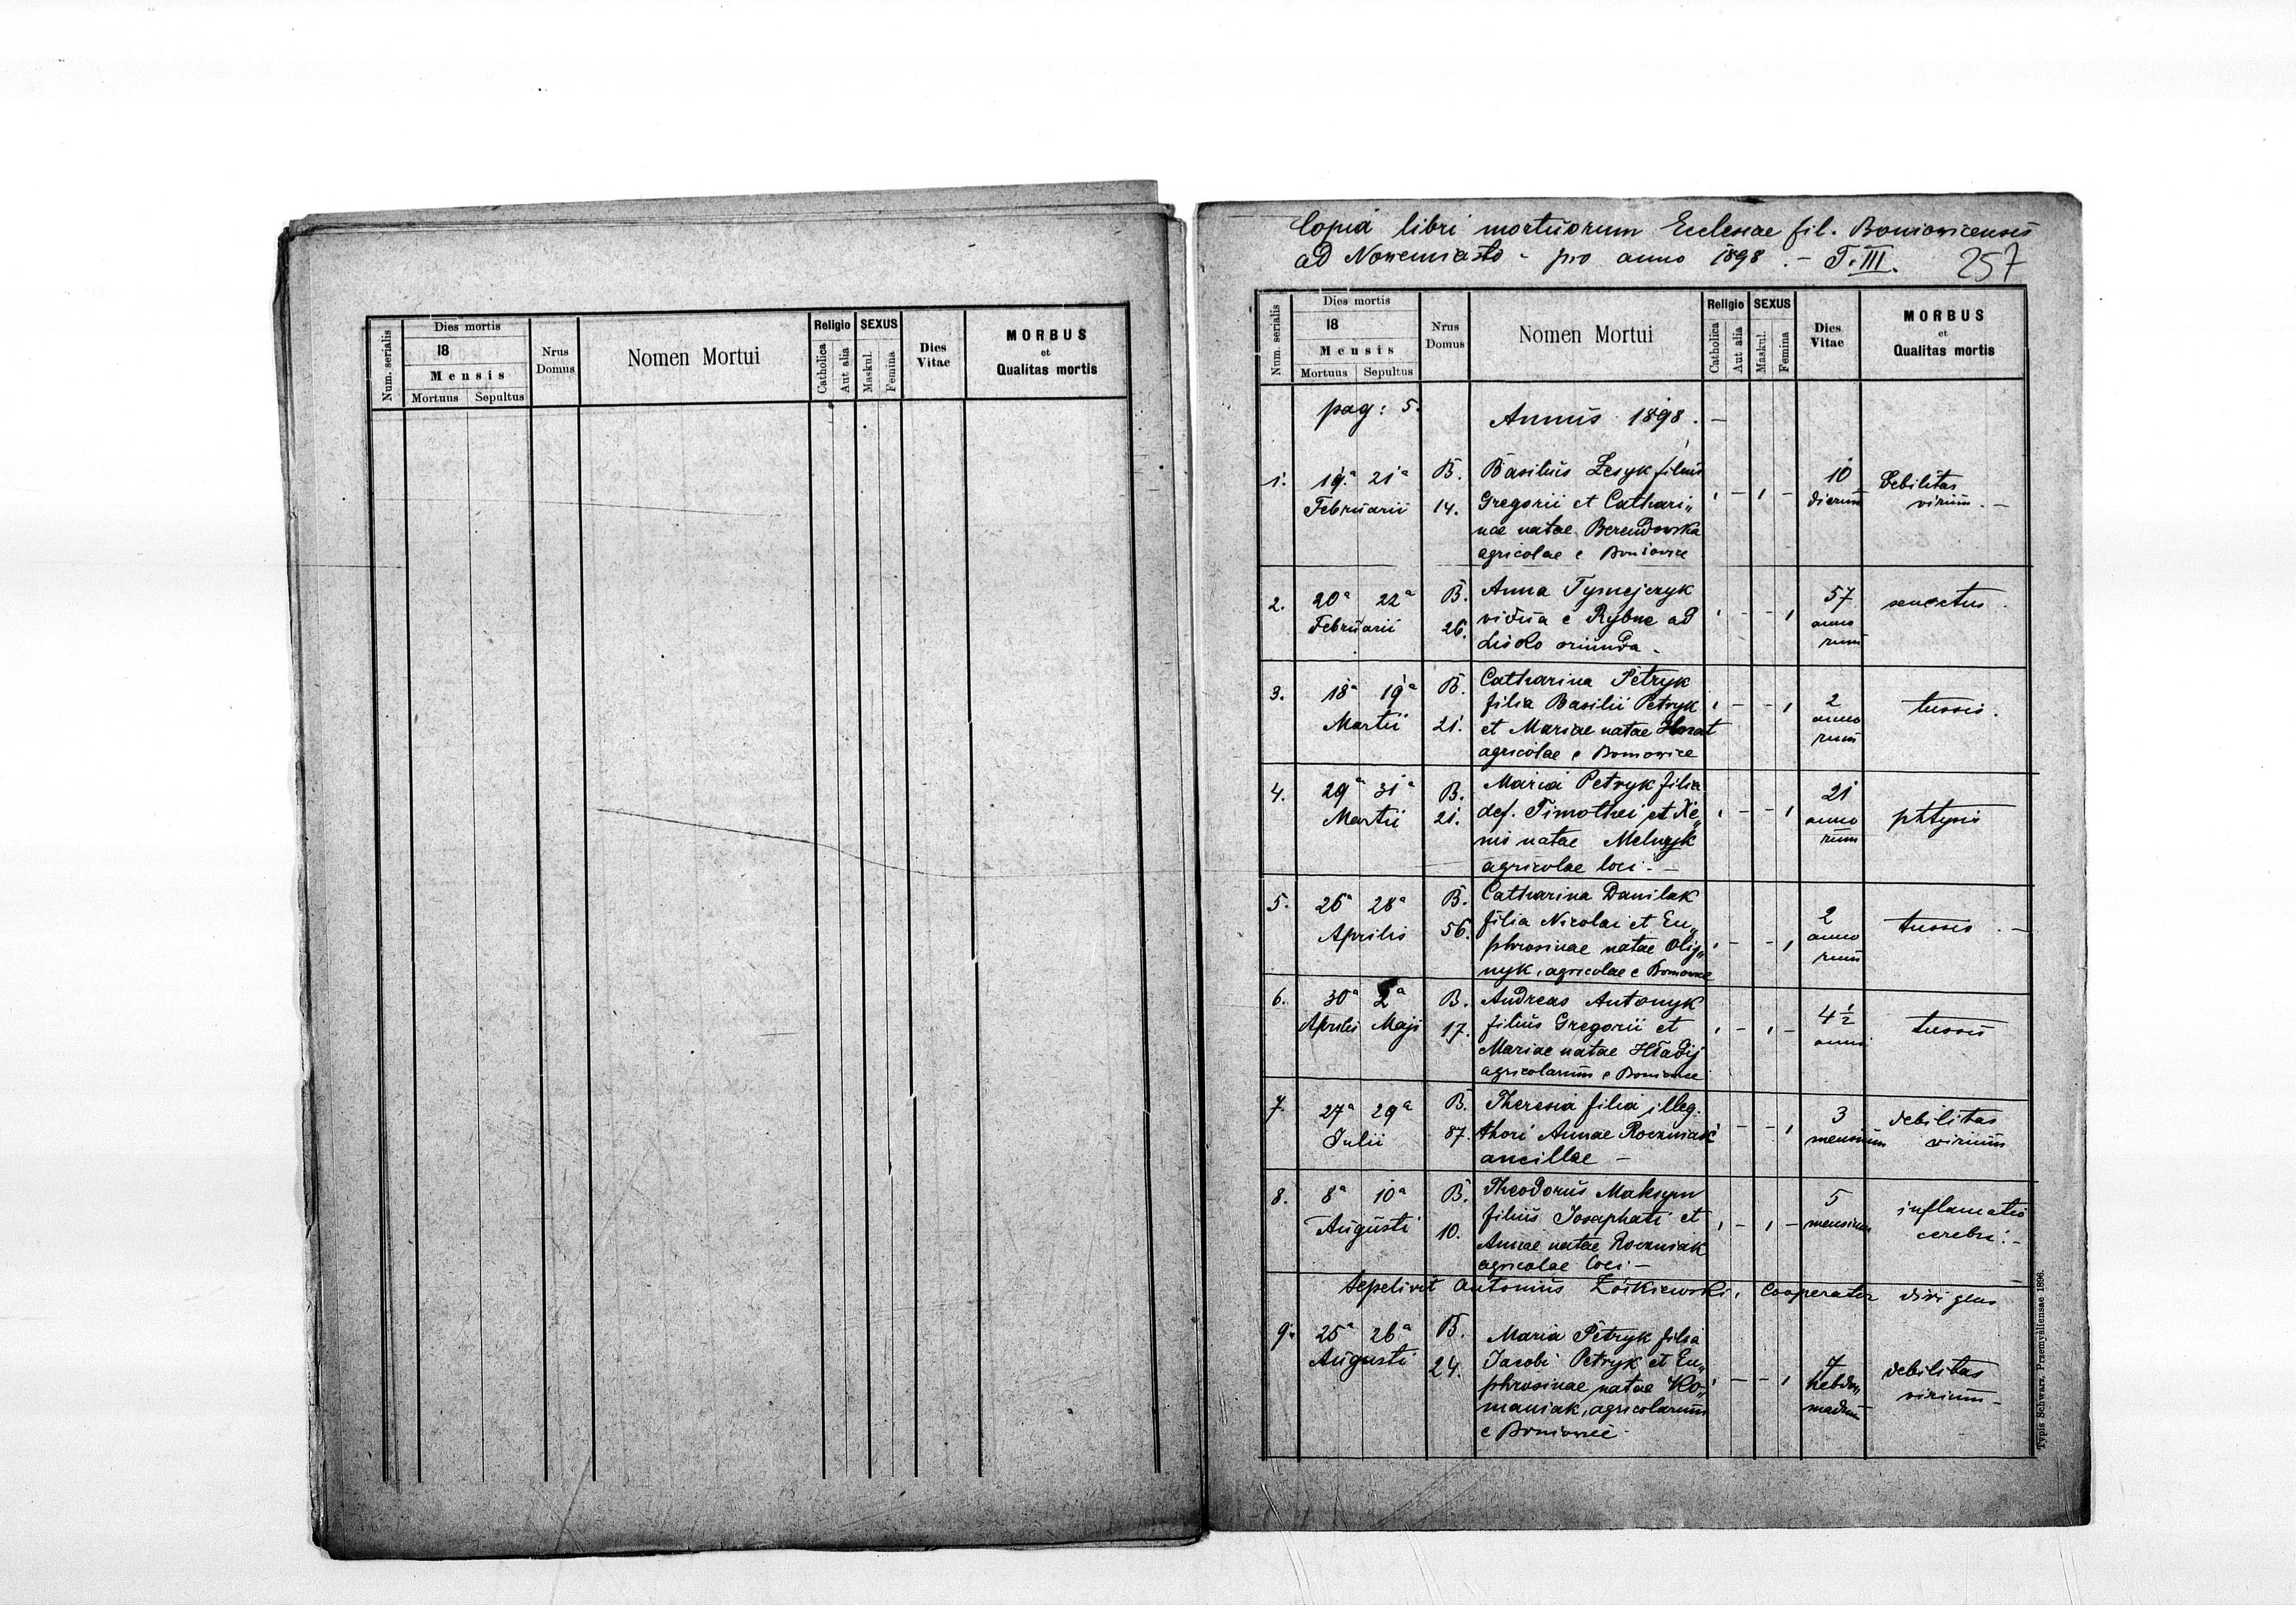 Num. serialis
Dies mortis
18
Mensis
Mortuus Sepultus
Nrus Domus
Nomen Mortui
Religio
Catholica
Aut alia
SEXUS
Maskul.
Femina
Dies Vitae
MORBUS
et
Qualitas mortis
Copia libri mortuorum Ecclesiae fil. Boniovicensis
ad Nowemiasto - pro anno 1898. - T. III. 257
Num. serialis
Dies mortis
18
Mensis
Mortuus Sepultus
Nrus Domus
Nomen Mortui
Religio
Catholica
Aut alia
SEXUS
Maskul.
Femina
Dies Vitae
MORBUS
et
Qualitas mortis
pag: 5. Annus 1898. -
1. 19ª 21ª B. Basilius Lesyk filius 10 Debilitas
Februarii 14. Gregorii et Cathari„ dierum virium. -
nae natae Berendowska
agricolae e Boniowice
2. 20ª 22ª B. Anna Tymejczyk 57 senectus.
Februarii 26. vidua e Rybne ad anno
Lisko oriunda. rum
3. 18ª 19ª B. Catharina Petryk
filia Basilii Petryk 2 tussis.
Martii 21. et Mariae natae anno
agricolae e Boniowice rum
4. 29ª 31ª B. Maria Petryk filia 21
Martii 21. def. Timothei et Xe„ anno phtysis
nis natae Melnyk rum
agricolae loci. -
5. 26ª 28ª B. Catharina Danilak
Aprilis 56. filia Nicolai et Eu„ 2 tussis. -
phrosinae natae Olij„ anno
nyk, agricolae e Boniowice rum
6. 30ª 2ª B. Andreas Antonyk 4 1/2
Aprilis Maji 17. filius Gregorii et anni tussis
Mariae natae Hładij
agricolarum e Boniowice
7. 27ª 29ª B. Theresia filia illeg. 3 debilitas
Julii 87. thori Annae Roczniak mensium virium
ancillae -
8. 8ª 10ª B. Theodorus Maksym 5 inflamatio
Augusti 10. filius Josaphati et mensium cerebri. -
Annae natae Roczniak
agricolae loci. -
sepelivit Antonius Żółkiewski, Cooperator dirigens
9. 25ª 26ª B. Maria Petryk filia
Augusti 24. Jacobi Petryk et Eu„ 7 debilitas
phrosinae natae Ro„ hebdo„ virium -
maniak, agricolarum madum
e Boniowice
Typis Schwarz, Przemyśliensae 1896.